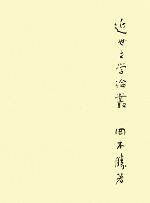 近世文学論叢
岡本勝著